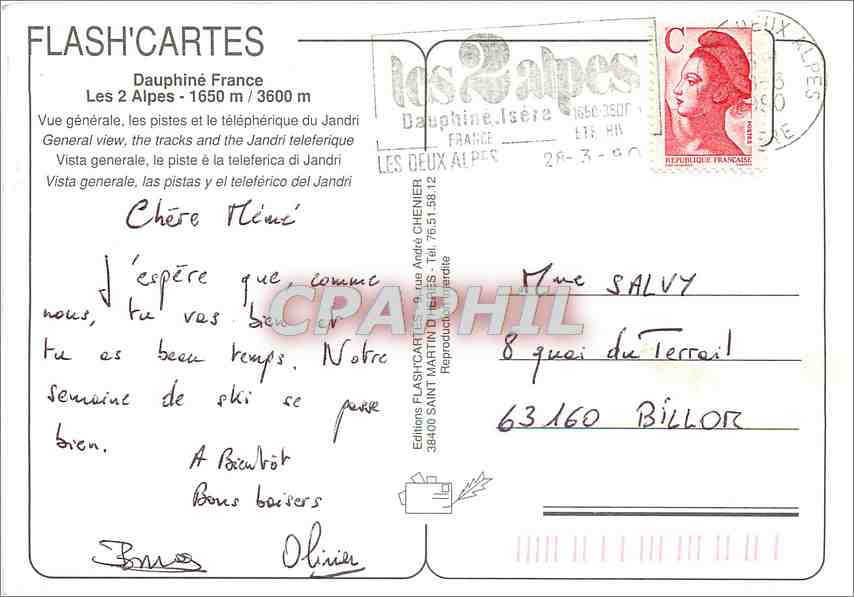 FLASH'CARTES
Dauphiné France
Les 2 Alpes - 1650 m / 3600 m
Vue générale, les pistes et le téléphérique du Jandri
General view, the tracks and the Jandri teleferique
Vista generale, le piste è la teleferica di Jandri
Vista generale, las pistas y el teleférico del Jandri
Chère Mémé
J'espère que, comme
nous, tu vas bien et
tu as beau temps. Notre
semaine de ski se passe
bien.
A Bientôt
Bons baisers
Olivier
Editions FLASH'CARTES - 9, rue André CHENIER
38400 SAINT MARTIN D'HERES - Tél. 76.51.58.12
Reproduction interdite
les 2 alpes
Dauphiné.Isère
FRANCE
1650-3600
ETE-HIV
LES DEUX ALPES
28-3-90
DEUX ALPES
1990
C
POSTES
REPUBLIQUE FRANÇAISE
Mme SALVY
8 quai du Terrail
63160 BILLOM
CPAPHIL